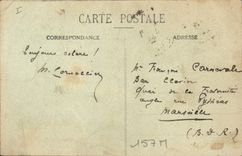 I
CARTE POSTALE
CORRESPONDANCE
ADRESSE
Toujours colère!
Mr François Carnavale
Bar Clovis
Quai de la Fraternité
angle rue
Marseille
(B.D.R)
157M